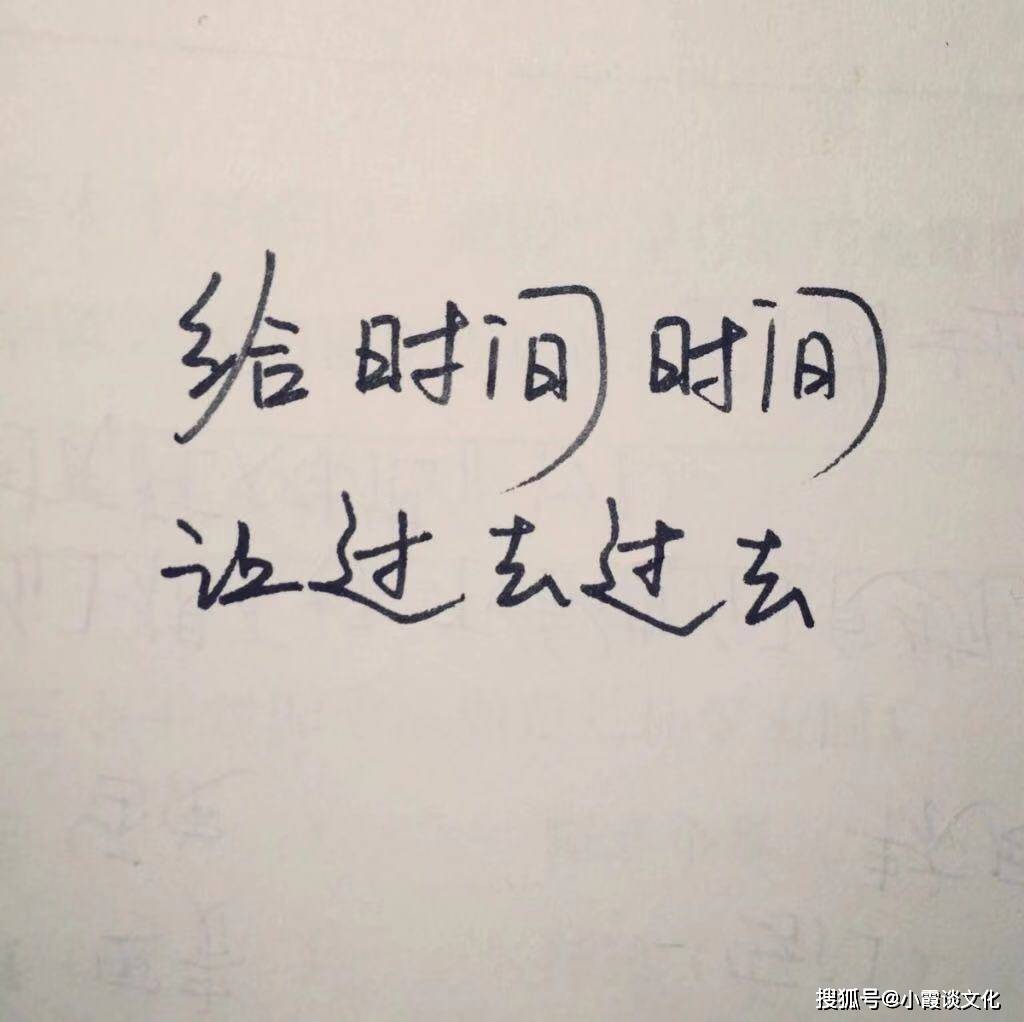 给时间时间
让过去过去
搜狐号@小霞谈文化